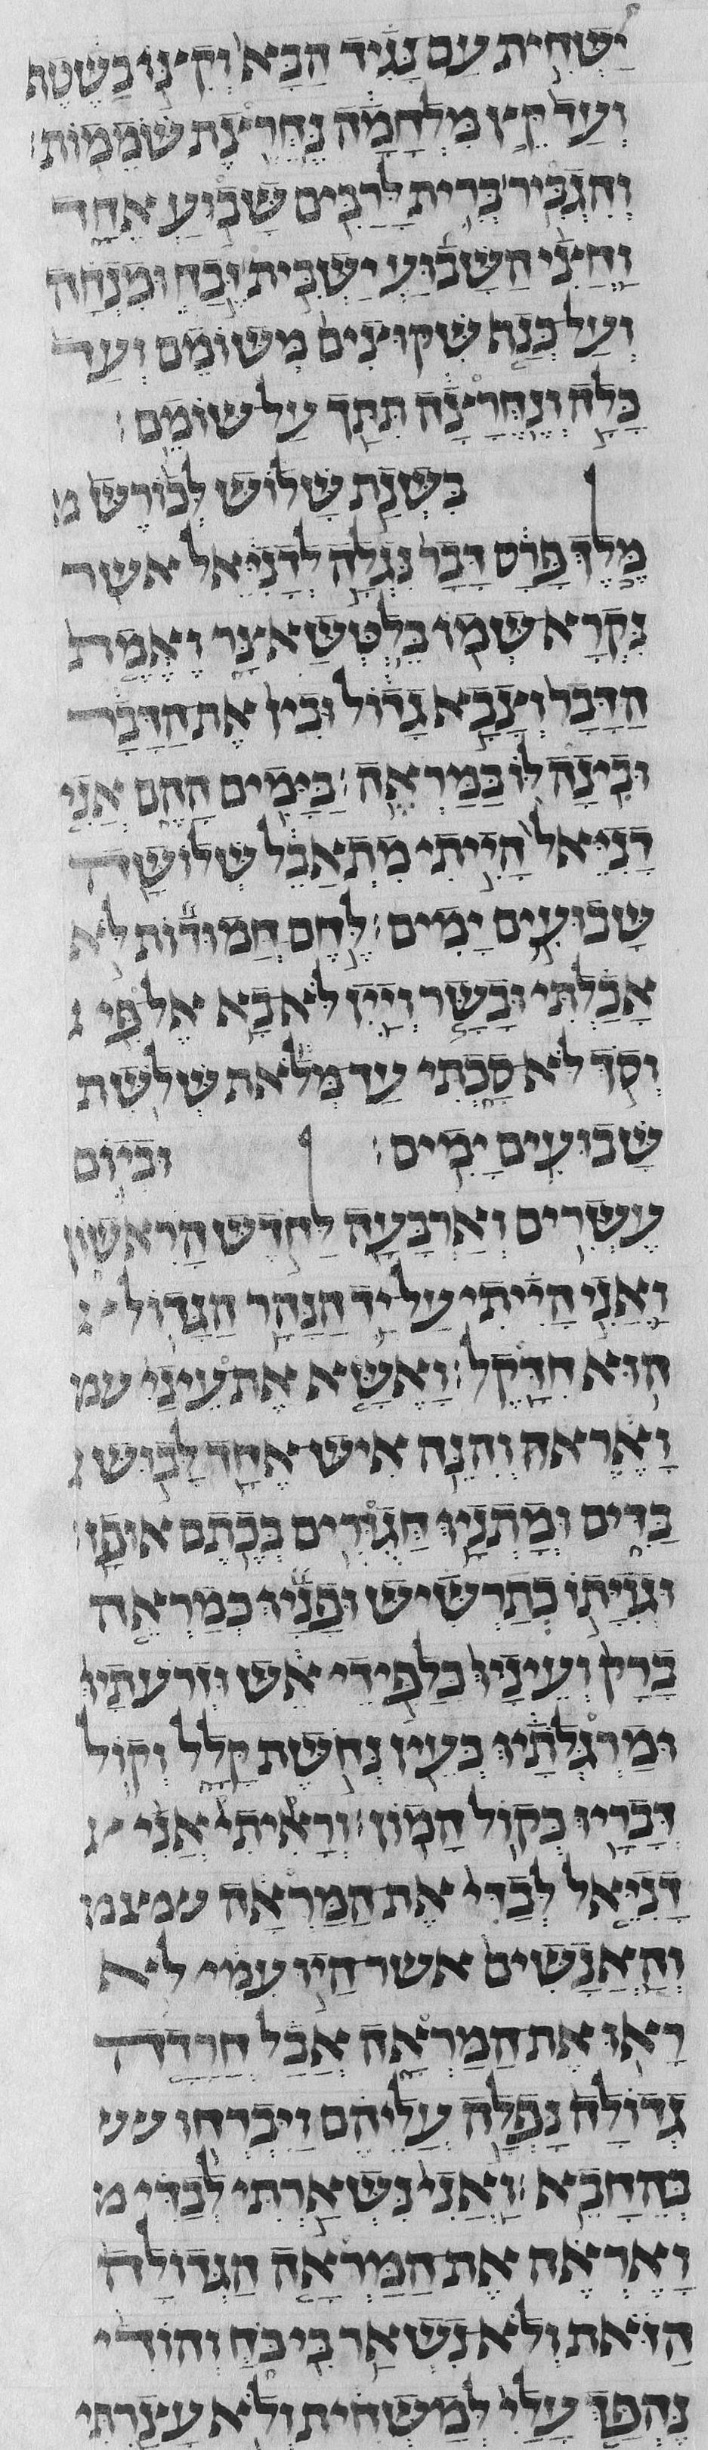 ישחית עם נגיד הבא וקיצו בשטף
ועד קץ מלחמה נחרצת שוממות׃
והגביר ברית לרבים שבוע אחד
וחצי השבוע ישבית זבח ומנחה
ועל כנף שקוצים משומם ועד
כלה ונחרצה תתך על שומם׃
בשנת שלוש לכורש מ
מלך פרס דבר נגלה לדניאל אשר
נקרא שמו בלטשאצר ואמת
הדבר וצבא גדול ובין את הדבר
ובינה לו במראה׃ בימים ההם אני
דניאל הייתי מתאבל שלושה
שבועים ימים׃ לחם חמודות לא
אכלתי ובשר ויין לא בא אל פי
וסוך לא סכתי עד מלאת שלשת
שבועים ימים׃ וביום
עשרים וארבעה לחדש הראשון
ואני הייתי על יד הנהר הגדול
הוא חדקל׃ ואשא את עיני עמ
ואראה והנה איש אחד לבוש
בדים ומתניו חגורים בכתם אופז׃
וגויתו כתרשיש ופניו כמראה
ברק ועיניו כלפידי אש וזרעתיו
ומרגלתיו כעין נחשת קלל וקול
דבריו כקול המון׃ וראיתי אני
דניאל לבדי את המראה עמ
והאנשים אשר היו עמי לא
ראו את המראה אבל חרדה
גדולה נפלה עליהם ויברחו
בהחבא׃ ואני נשארתי לבדי מ
ואראה את המראה הגדולה
הזאת ולא נשאר בי כח והודי
נהפך עלי למשחית ולא עצרתי